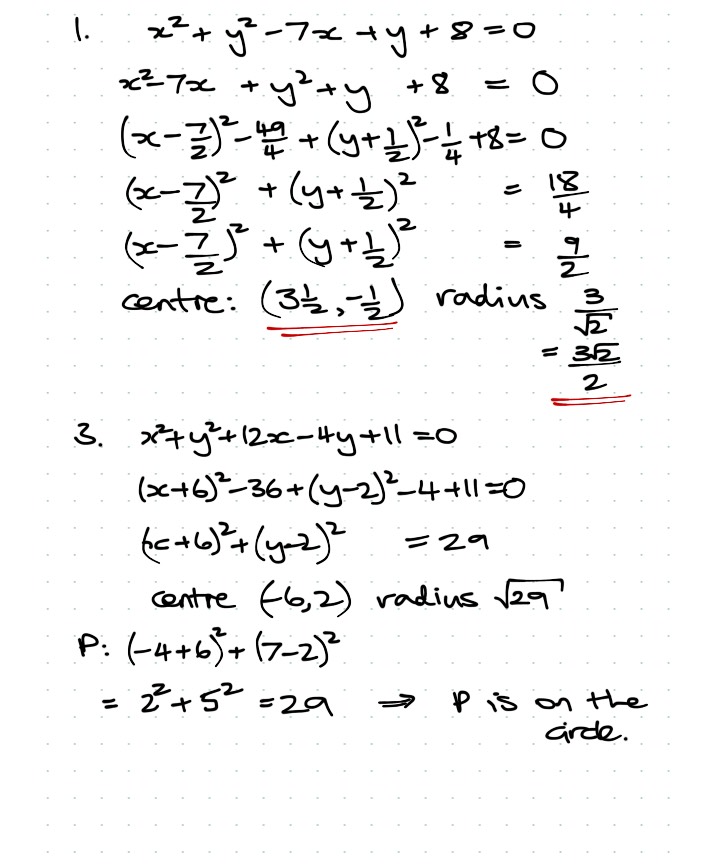 1. x² + y² - 7x + y + 8 = 0
x² - 7x + y² + y + 8 = 0
(x - 7/2)² - 49/4 + (y + 1/2)² - 1/4 + 8 = 0
(x - 7/2)² + (y + 1/2)² = 18/4
(x - 7/2)² + (y + 1/2)² = 9/2
centre: (3 1/2, -1/2) radius 3/√2
= 3√2/2
3. x² + y² + 12x - 4y + 11 = 0
(x+6)² - 36 + (y-2)² - 4 + 11 = 0
(x+6)² + (y-2)² = 29
centre (-6,2) radius √29
P: (-4+6)² + (7-2)²
= 2² + 5² = 29 ⇒ P is on the
circle.